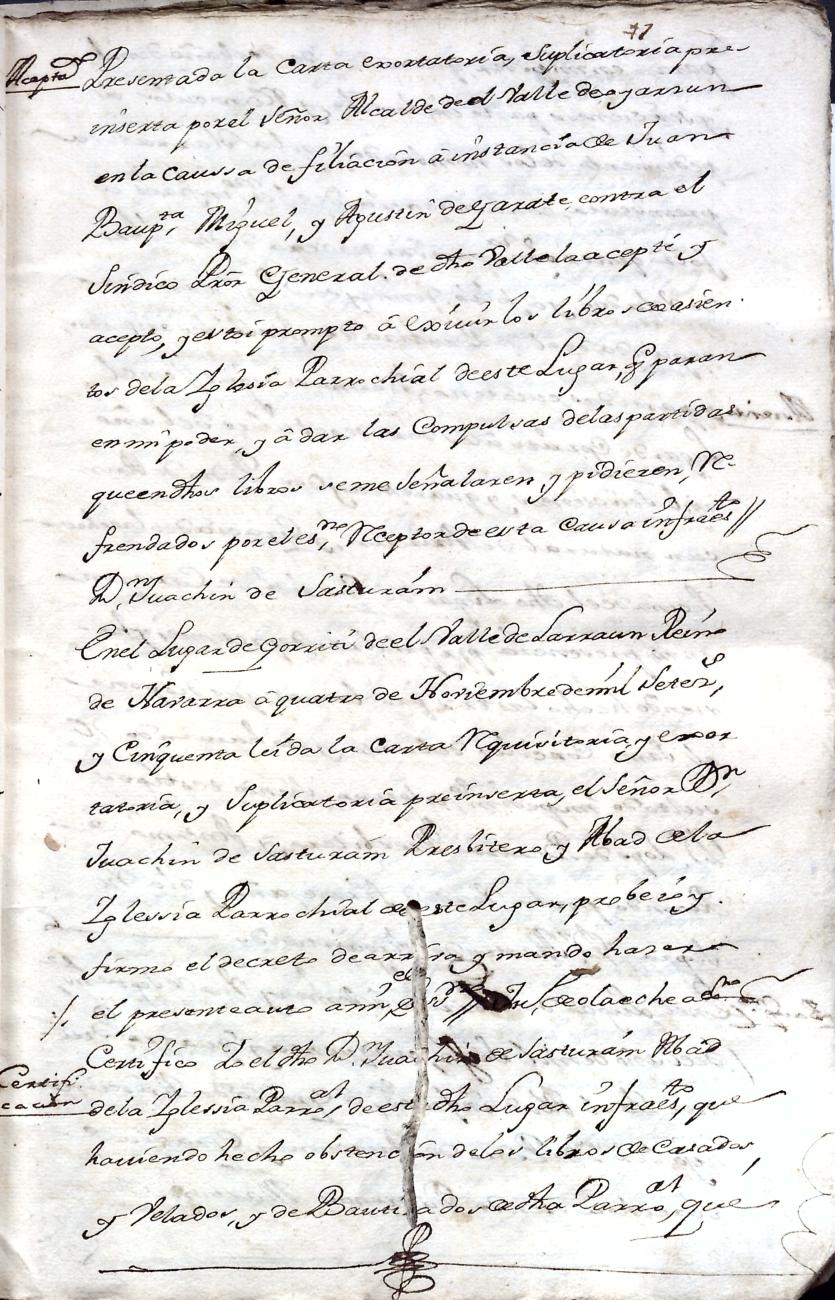 77
Acepta.on
Presentada la Carta exortatoria, Suplicatoria pre-
inserta por el Señor Alcalde de el Valle de oyarzun
en la Caussa de filiación â instancia de Juan
Baup.ta, Miguel, y Agustin de Garate, contra el
Sindico Pror General. de dho Valle la acepté y
acepto, y estoi prompto â exivir los libros de asien.
tos de la Iglesia Parrochial de este Lugar, q paran
en mi poder, y â dar las Compulsas de las partidas
que en dhos libros se me Señalaren, y pidieren, Re-
frendados por el es.no, Rceptor de esta Causa infraes.to //
D.n Juachin de Sasturám
En el Lugar de Gorriti de el Valle de Larraun Reino
de Navarra â quatro de Noviembre de mil Setez.s,
y Cinquenta leida la Carta Rquisitoria, y exor
tatoria, y Suplicatoria preinserta, el Señor Dn,
Juachin de Sasturám Presbitero, y Abad de la
Iglessia Parrochial de este Lugar, probeió y.
firmo el decreto de arriva y mando hazer
el presente auto a mi el
Certifi-
cacion
Certifico Yo el dho D.n Juachin de Sasturám Abad
de la Iglessia Parro.al, de este dho Lugar infraes.to, que
haviendo hecho obstención de los libros de Casados,
y Velados, y de Bautizados de dha Parro.al, que